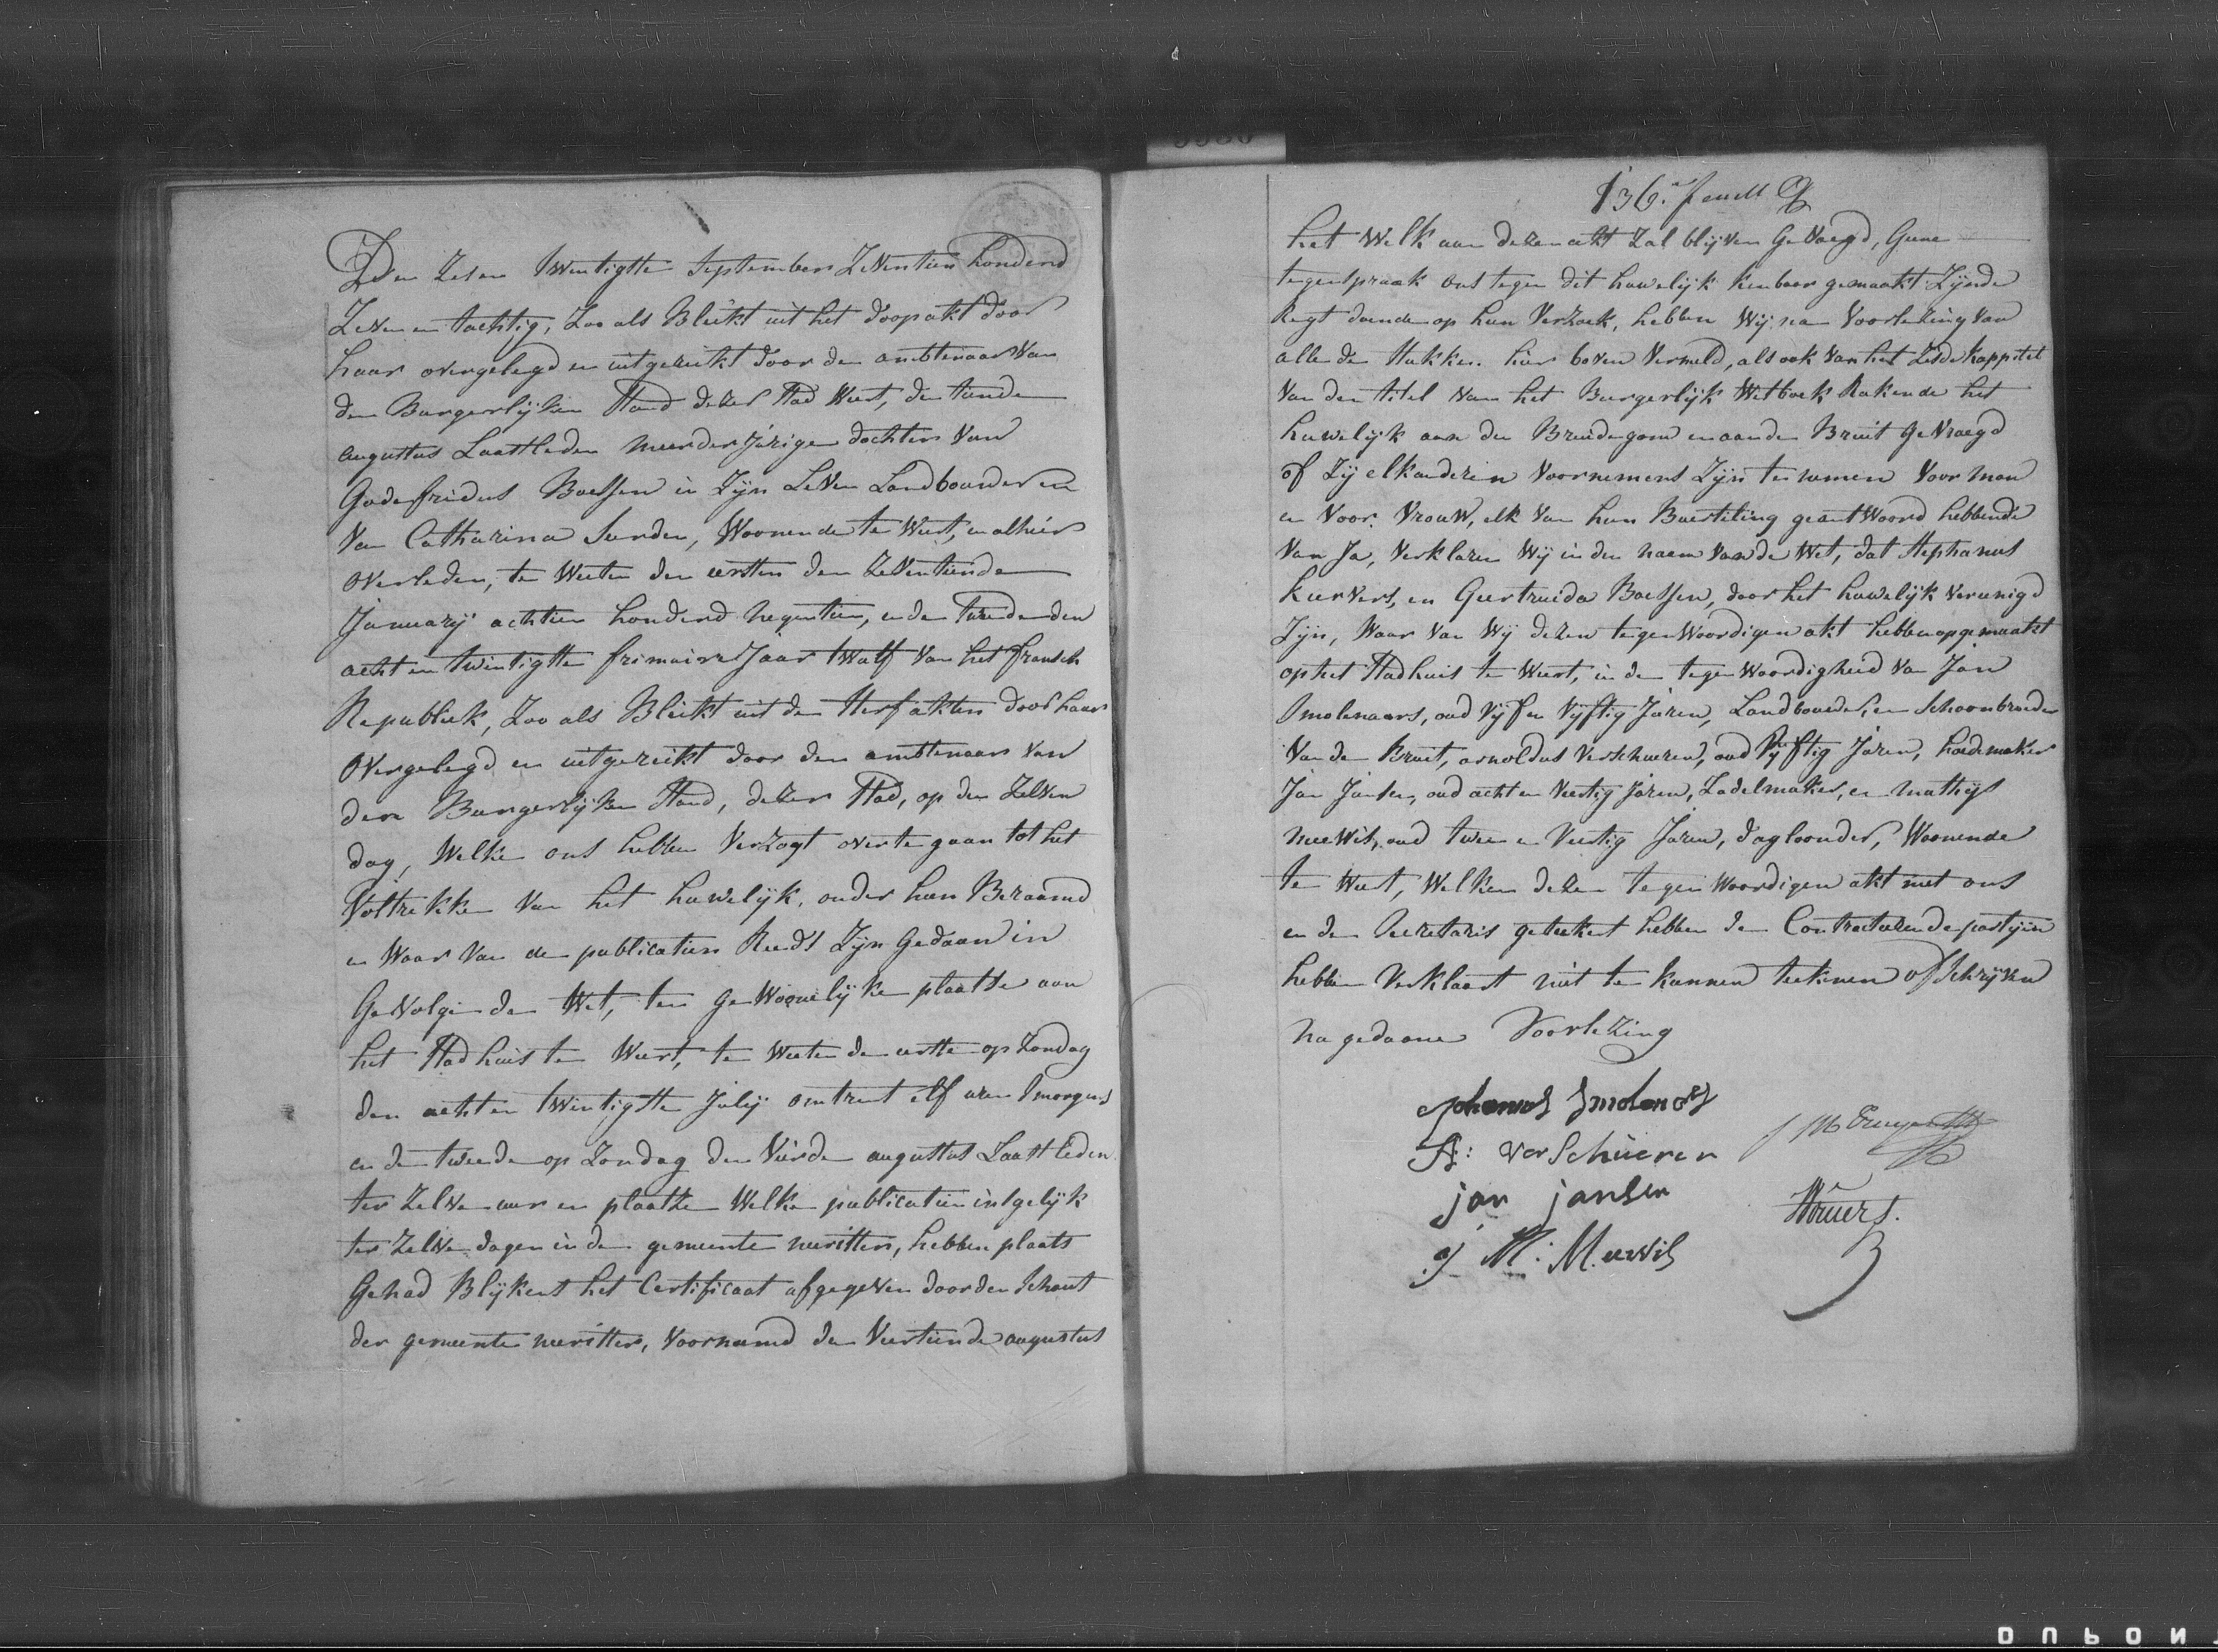 Den Zes en twentigste September Zeventien honderd
Zeven en tachtig, Zoo als Bleikt uit het doopakt door
haar overgelegd en uitgereikt door den ambtenaar Van
den Burgerlijken Stand dezer Stad Weert, den tiende
augustus Laatstleden meerderjarigen dochter Van
Godefridus Boessen in Zijn Leven Landbouwder en
Van Catharina Seerden, Woonende te Weert, en alhier
overleden, te Weeten den eersten den Zeventiende
January achtien honderd negentien, en de tweede den
acht en twintigste frimaire Jaar twalf Van het fransch
Republiek, Zoo als Bleikt uit de Sterfakten door haar
overgelegd en uitgereikt door den ambtenaar Van
den Burgerlijken Stand, dezer Stad, op den Zelven
dag, Welke ons hebben Verzogt over te gaan tot het
Voltrekken Van het huwelijk, onder hun Beraamd
en Waar Van de publicatien Reeds Zijn Gedaan in
Gevolge de Wet, ten gewoonelijke plaatse aan
het Stadhuis te Weert, te Weeten de eerste op Zondag
den acht en twintigsten Julij omtrent elf uren Smorgens
en de tweede op Zondag den Vierde augustus Laastleden
ter Zelve uur en plaatse Welke publicatien insgelijk
ter Zelve dagen in de gemeente neeritter, hebben plaats
Gehad Blijkens het Certificaat afgegeven door den Schout
der gemeente neeritter, Voornaemd den Veertiende augustus
136.e feuill
het Welk aan dezen akt Zal blijven Gevoegd, Geene
tegenspraak ons tegen dit huwelijk kenbaar gemaakt Zijnde
Regt doende op hun Verzoek, hebben Wij na Voorlezing van
alle de stukken hier boven Vermeld, als ook Van het Zesde kappittel
Van den titel Van het Burgerlijk Wetboek Rakende het
huwelijk aan den Bruidegom en aan de Bruit gevraegd
of Zij elkanderen Voornemens Zijn te nemen Voor man
en Voor Vrouw, elk Van hun geantwoord hebbende
Van Ja, Verklaren Wij in den naem Van de Wet, dat Stephanus
Kurvers, en Geertruida Boessen, door het huwelijk Verenigd
Zijn, Waar Van Wij dezen tegenwoordigen akt hebben opgemaakt
op het Stadhuis te Weert, in de tegenwoordigheid Van Jan
Smolenaars, oud Vijf en Vijftig Jaren, Landbouwder, en Schoonbroeder
Van de Bruit, arnoldus Verschueren, oud Vijftig Jaren, hoedemaker
Jan Jansen, oud acht en Veertig Jaren, Zadelmaker, en Mathijs
Meewis, oud twee en Veertig Jaren, dagloonder, Woonende
te Weert, Welken dezen tegenwoordigen akt met ons
en den Secretaris geteekent hebben de Contracteerende partijen
hebben Verklaart niet te kunnen teekenen of Schrijven
na gedaane Voorlezing
Johannes Smolenars
A: VerSchüeren
jan jansen
M: Meewis